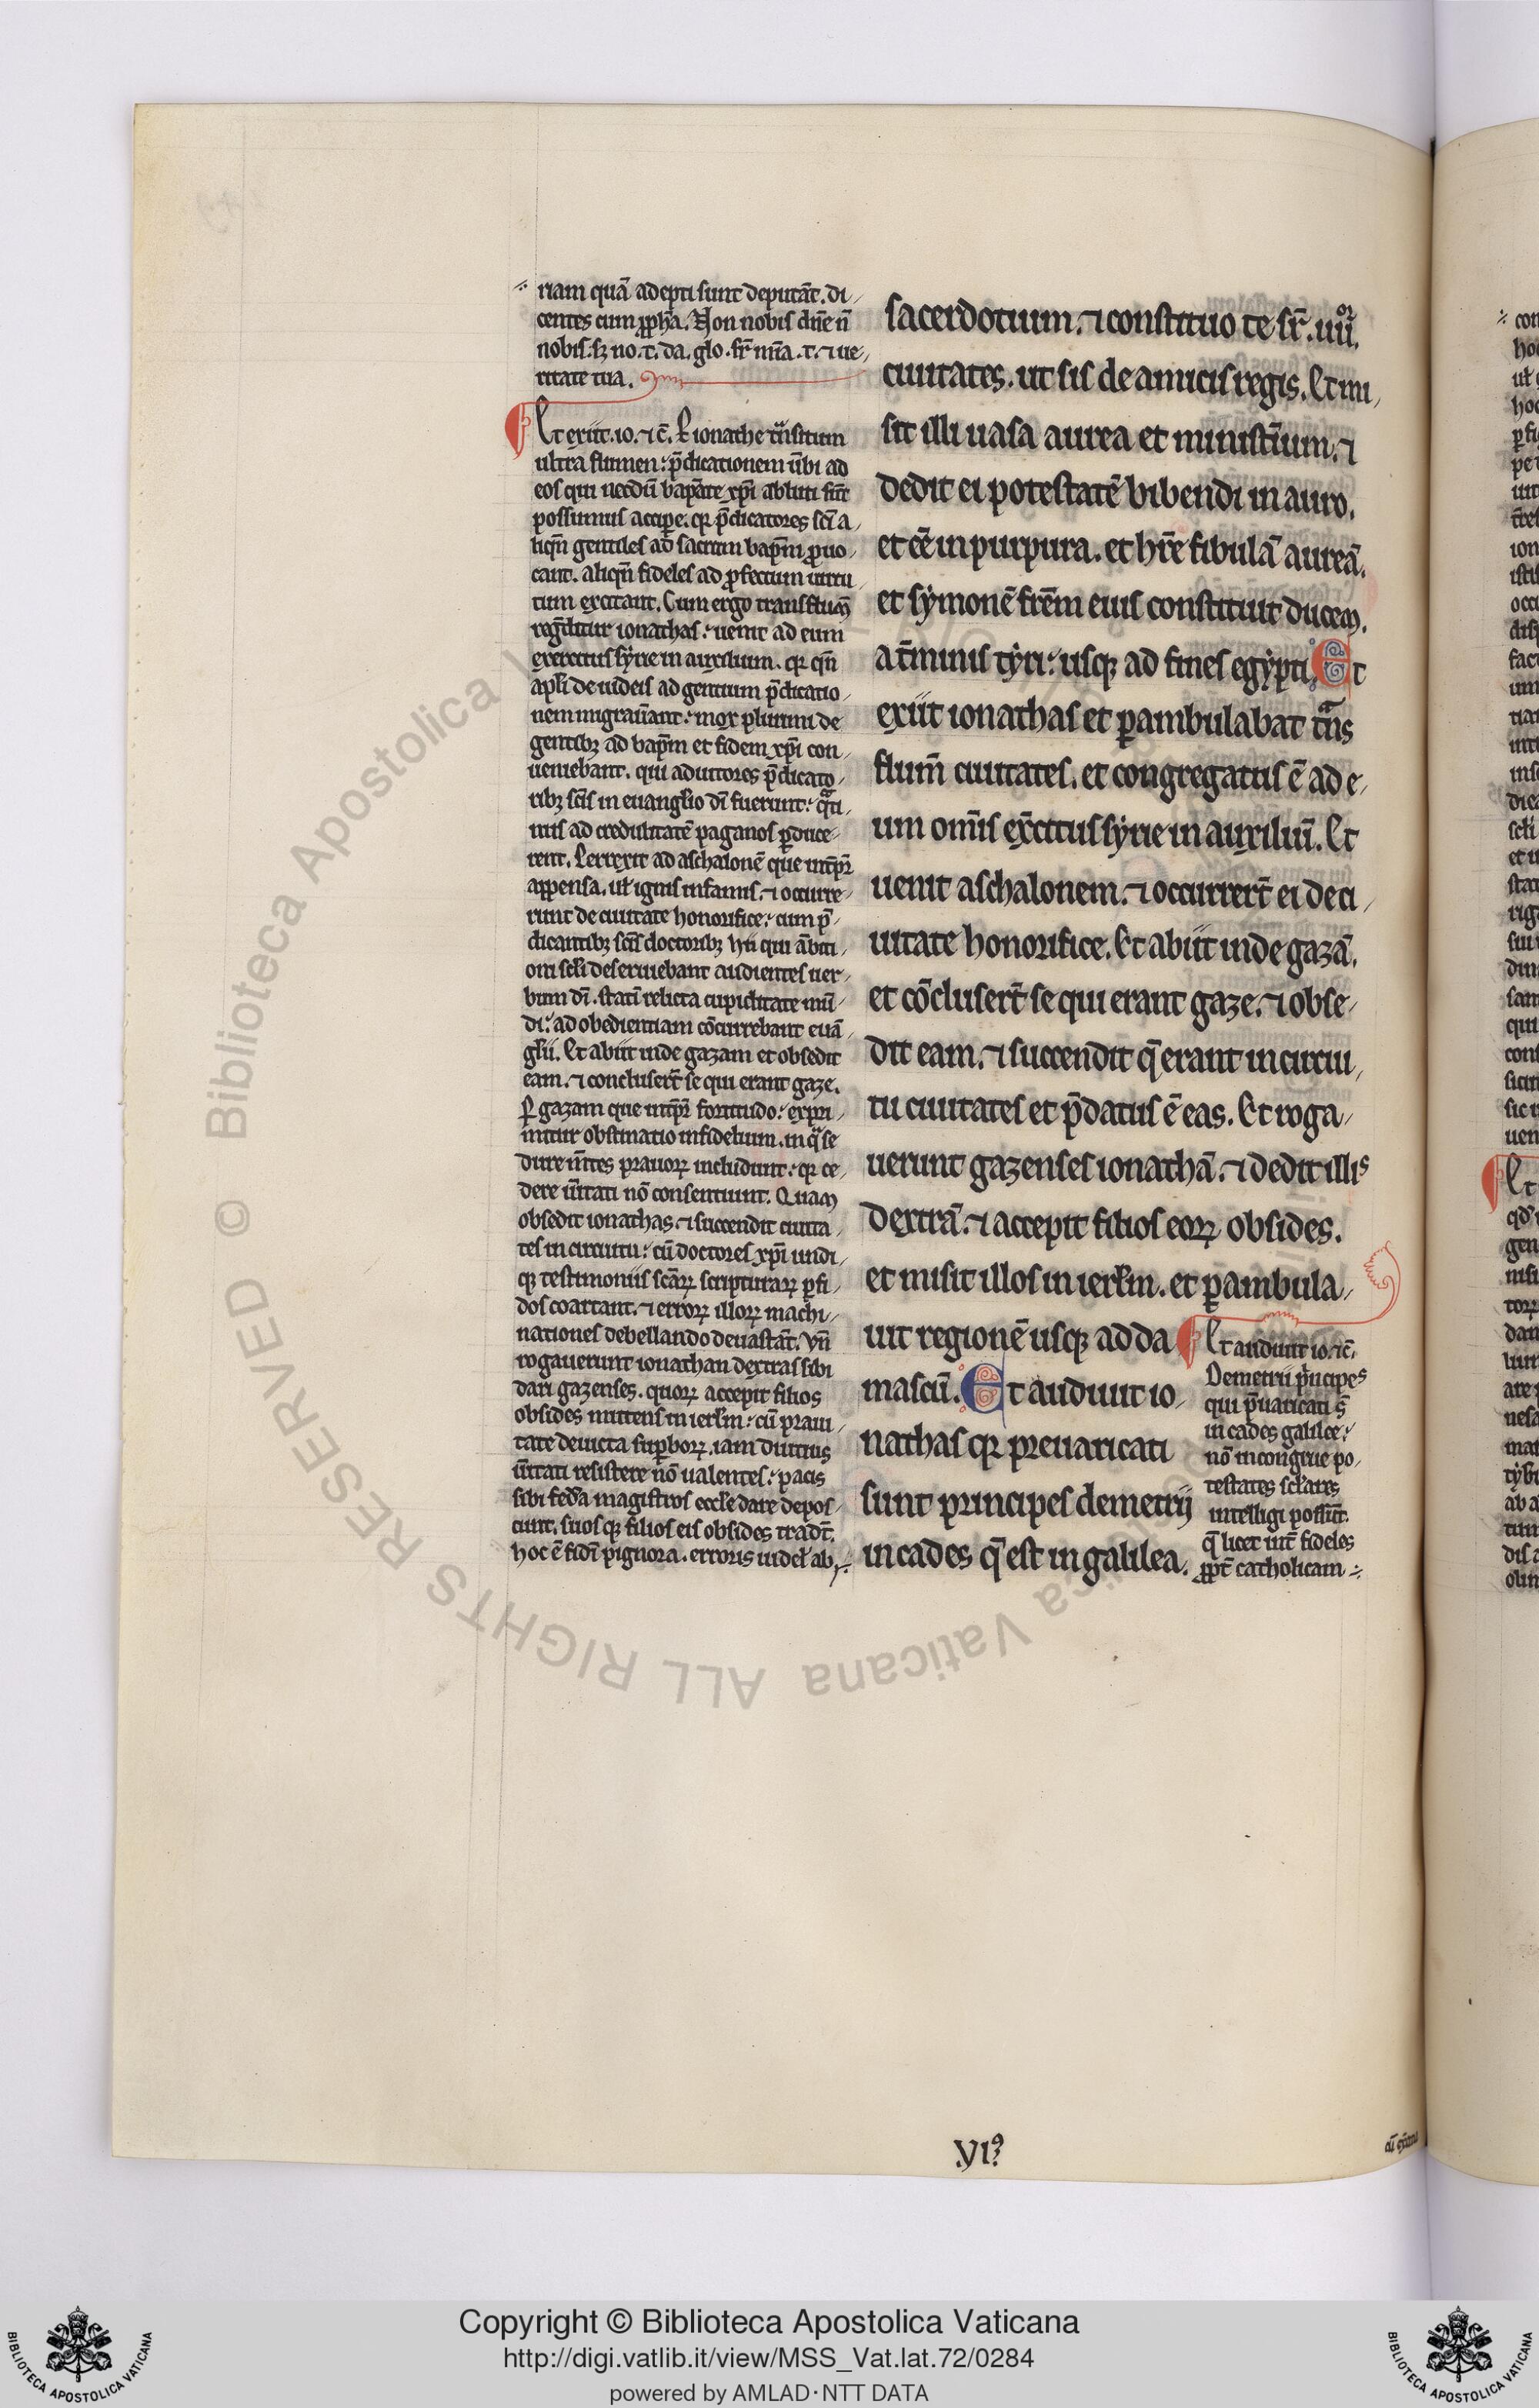 riam quā adepti sunt deputāt. di
centes cum ꝓph̄a. Non nobis dn̄e n̄
nobis. sꝫ no. t. da. glo. sr̄ mīa. t. ⁊ ue
ritate tua.
Et exiit. io. ⁊ c̄. ionathe tn̄situm
ultra flumen: p̄dicationem ūbi ad
eos qui necdū bap̄ate xp̄i abluti sūt
possumus accipe. qꝛ p̄dicatores sc̄i a
liqn̄ gentiles ad sacrum bap̄m ꝓuo
cant. aliqn̄ fideles ad ꝓfectum uirtu
tum excitant. Cum ergo trans flum̄
reḡditur ionathas: uenit ad eum
exercitus syrie in auxilium. qꝛ qn̄
apl̄i de iudeis ad gentium p̄dicatio
nem migrau̅ant: mox plurimi de
gentibꝫ ad bap̄m et fidem xp̄i con
ueniebant. qui adiutores p̄dicato
ribꝫ sc̄is in euangl̄io dī fuerunt:
uis ad credulitatē paganos ꝑduce
rent. Perrexit ad aschalonē que int̄p̄r
appensa. ul̄ ignis infamis. ⁊ occurre
runt de ciuitate honorifice: cum p̄
dicantibꝫ sc̄is doctoribꝫ hii qui ābiti
oni sc̄li deseruiebant audientes uer
bum dī. statī relicta cupiditate mū
di: ad obedientiam cōcurrebant euā
gl̄ii. Et abiit inde gazam et obsedit
eam. ⁊ concluser̄t se qui erant gaze.
Ꝑ gazam que int̄p̄r fortitudo: expri
mitur obstinatio infidelium. in q̄ se
dure m̄tes prauoꝝ includunt: qꝛ ce
dere ūitati nō consentiunt. Quam
obsedit ionathas. ⁊ succendit ciuita
tes in circuitu: cū doctores xp̄i undi
qꝫ testimoniis scāꝝ scripturaꝝ ꝑfi
dos coartant. ⁊ erroꝝ illoꝝ machi
nationes debellando deuastāt. Vn̄
rogauerunt ionathan dextras sibi
dari gazenses. quoꝝ accepit filios
obsides mittens in ierl̄m: cū praui
tate deuicta suꝑboꝝ. iam diutius
ūitati resistere nō ualentes: pacis
sibi fed̄a magistros eccl̄e dare depos
cunt. suos qꝫ filios eis obsides tradt̄.
hoc ē fidī pignora. erroris uidel̄ ab
sacerdotium. ⁊ constituo te sr̄. iiii.
ciuitates. ut sis de amicis regis. Et mi
sit illi uasa aurea et minist̄ium. ⁊
dedit ei potestatē bibendi in auro.
et eē in purpura. et hr̄e fibulā aureā.
et symonē fr̄em eius constituit ducem.
a t̄minis tyri: usqꝫ ad fines egypti. Et
exiit ionathas et ꝑambulabat tn̄s
flum̄ ciuitates. et congregatus ē ad e
um omīs ex̄citus syrie in auxiliū. Et
uenit aschalonem. ⁊ occurrer̄t ei de ci
uitate honorifice. Et abiit inde gazā.
et cōcluser̄t se qui erant gaze. ⁊ obse
dit eam. ⁊ succendit q̄ erant in circui
tu ciuitates et p̄datus ē eas. Et roga
uerunt gazenses ionathā. ⁊ dedit illis
dextrā. ⁊ accepit filios eoꝝ obsides.
et misit illos in ierl̄m. et ꝑambula
uit regionē usqꝫ ad da
mascū. Et audiuit io
nathas qꝛ preuaricati
sunt principes demetrij
in cades q̄ est in galilea.
Et audiuit io. ⁊c̄.
Demetrii p̄ncipes
qui p̄uaricati s̄
in cades galilee:
nō incongrue po
testates scl̄ares
intelligi possūt.
q̄ licet int̄ fideles
ꝓpt̄ catholicam
VIꝰ
cū
Copyright © Biblioteca Apostolica Vaticana
http://digi.vatlib.it/view/MSS_Vat.lat.72/0284
powered by AMLAD·NTT DATA